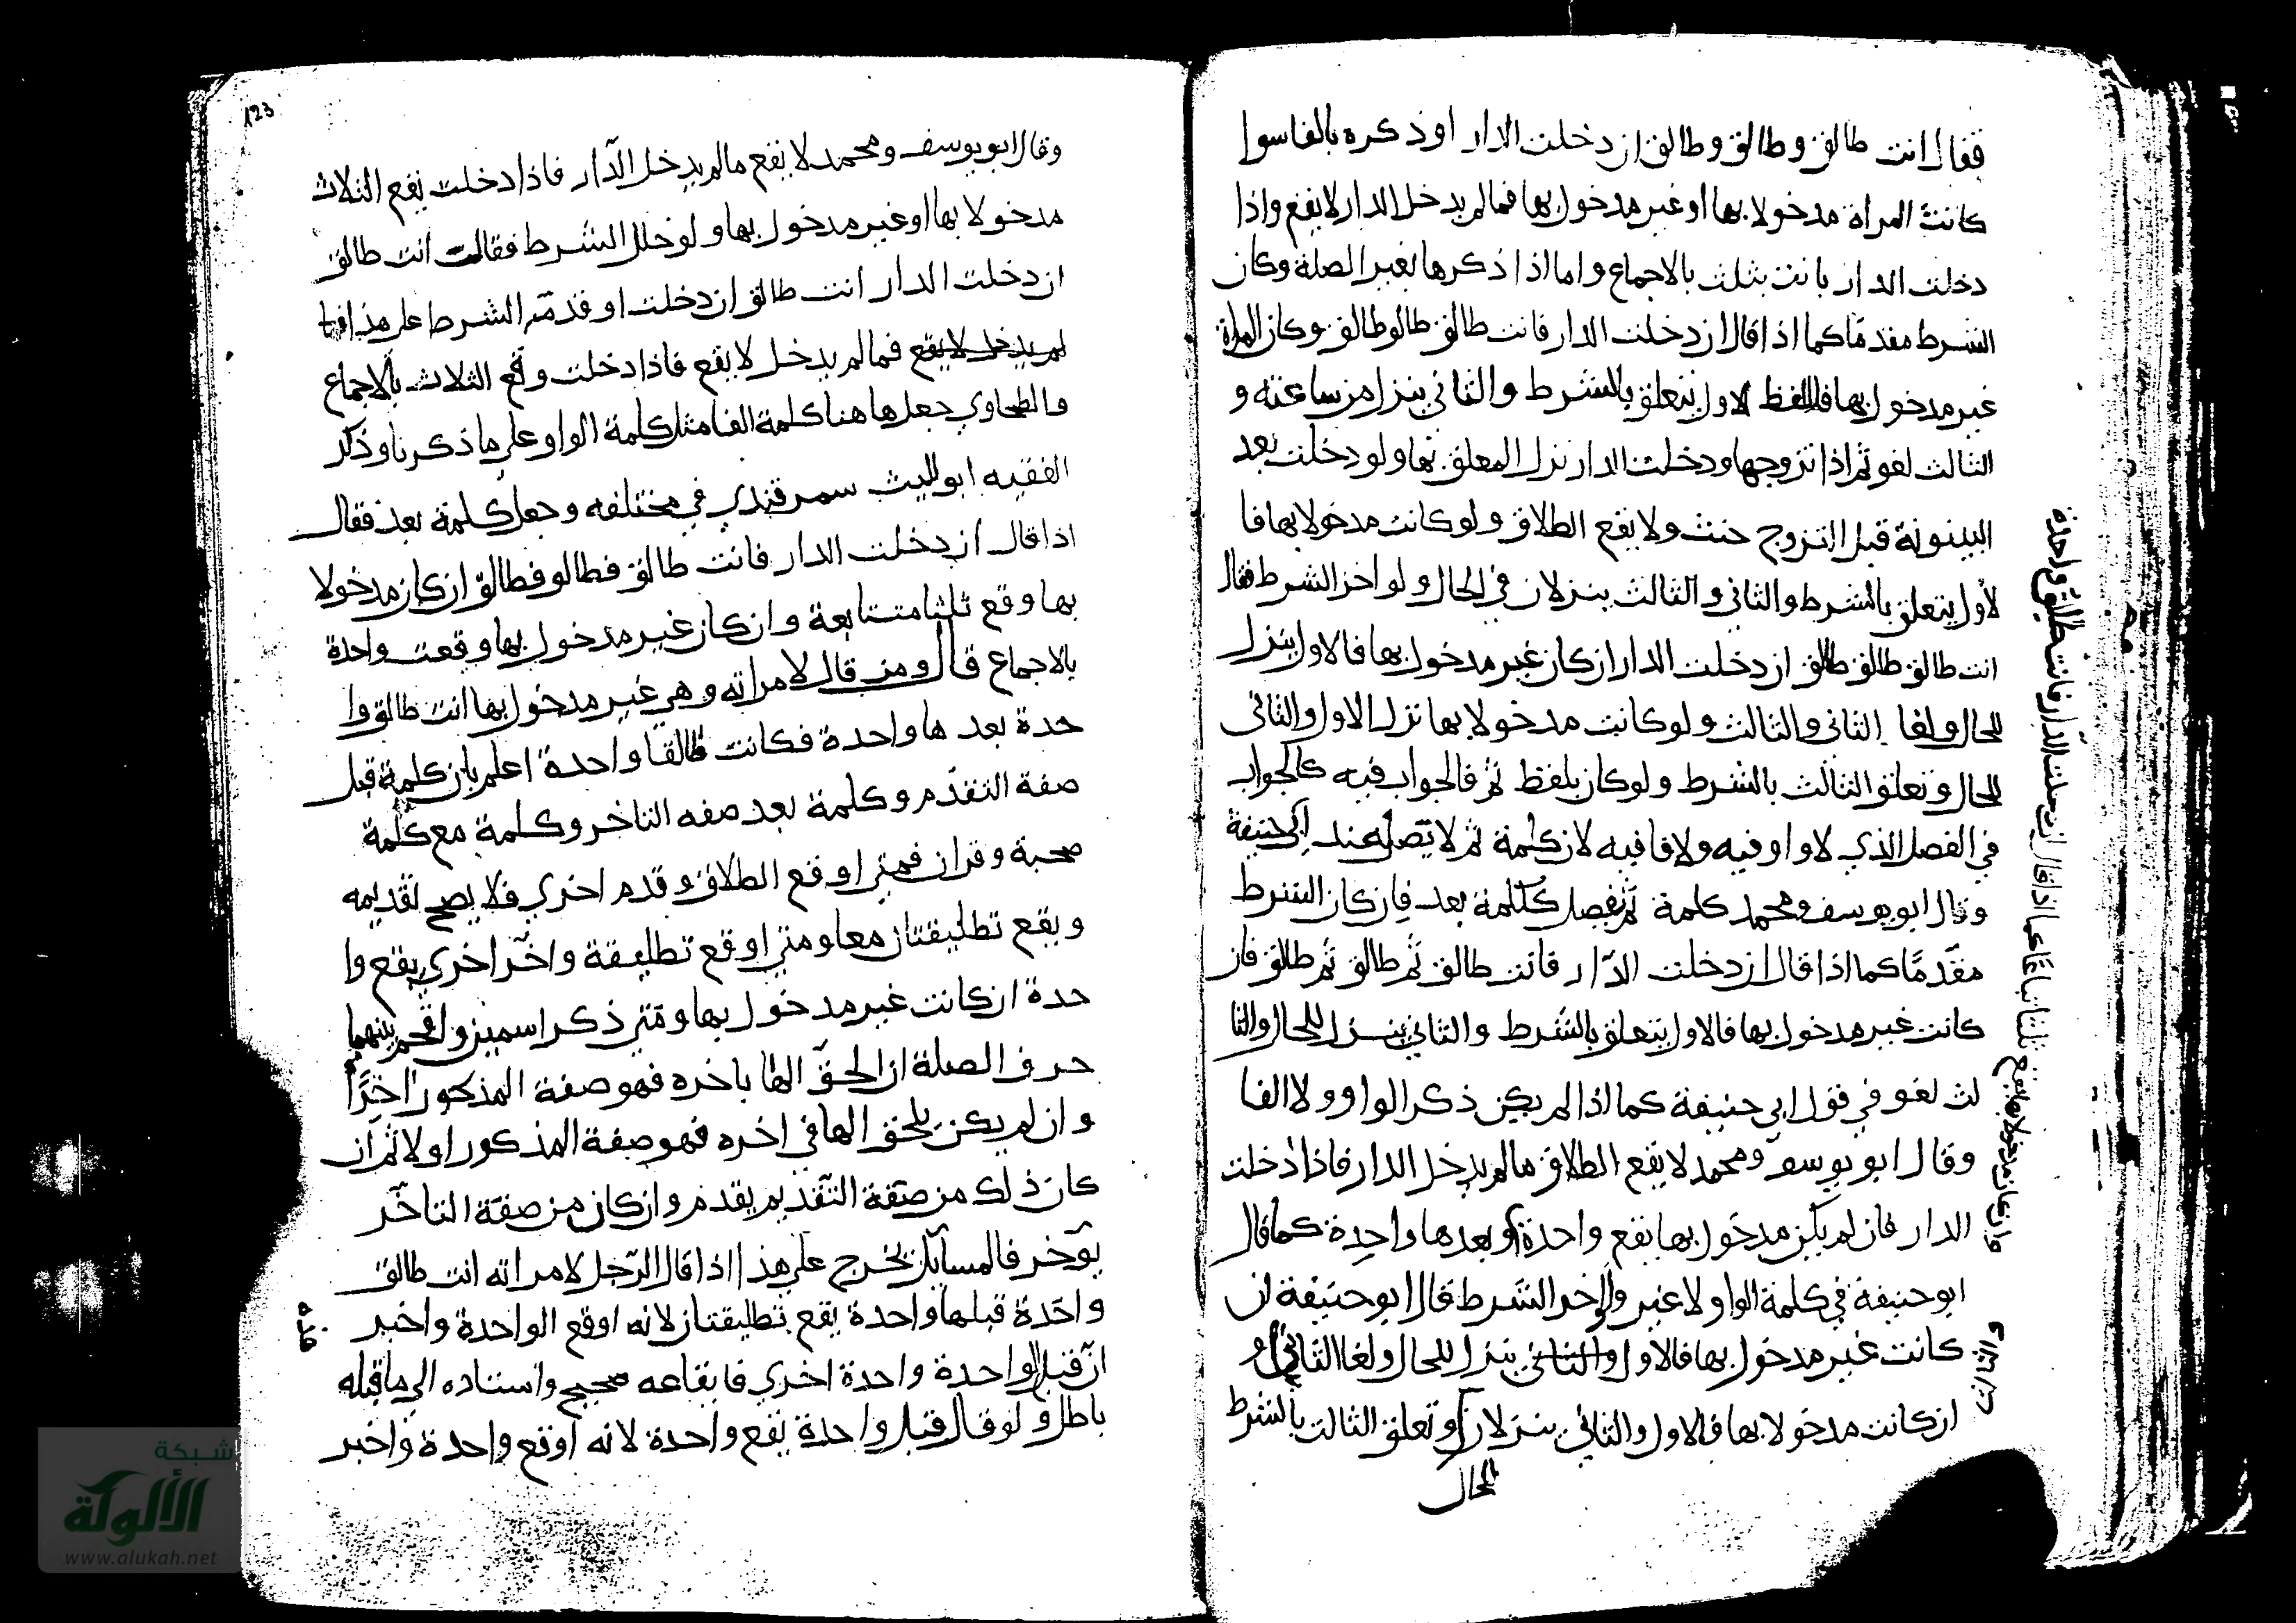 فقال انت طالق وطالق وطالق ان دخلت الدار او ذكره بالفا سوا
كانت المراة مدخولا بها او غير مدخول بها فما لم يدخل الدار لا يقع واذا
دخلت الدار بانت بثلث بالاجماع واما اذا ذكرها بغير الصلة وكان
الشرط مقدمًا كما اذا قال ان دخلت الدار فانت طالق طالق طالق وكان المراة
غير مدخول بها فاللفظ الاول يتعلق بالشرط والثاني ينزل من ساعته و
الثالث لغو ثم اذا تزوجها ودخلت الدار نزل المعلق بها ولو دخلت بعد
البينونة قبل التزوج حنث ولا يقع الطلاق ولو كانت مدخولا بها فا
لأول يتعلق بالشرط والثاني والثالث ينزلان في الحال ولو اخر الشرط فقال
انت طالق طالق طالق ان دخلت الدار ان كان غير مدخول بها فالاول ينزل
للحال ولغا الثاني والثالث ولو كانت مدخولا بها نزل الاول والثاني
للحال وتعلق الثالث بالشرط ولو كان بلفظ ثم فالجواب فيه كالجواب
في الفصل الذي لا واو فيه ولا فا فيه لان كلمة ثم لا تصله عند ابي حنيفة
وقال ابو يوسف ومحمد كلمة ثم يفصل ككلمة بعد فان كان الشرط
مقدمًا كما اذا قال ان دخلت الدّار فانت طالق ثم طالق ثم طالق فان
كانت غير مدخول بها فالاول يتعلق بالشرط والثاني ينزل للحال والثا
لث لغو في قول ابي حنيفة كما اذا لم يكن ذكر الواو ولا الفا
وقال ابو يوسف ومحمد لا يقع الطلاق ما لم يدخل الدار فاذا دخلت
الدار فان لم يكن مدخول بها تقع واحدة وبعدها واحدة كما قال
ابو حنيفة في كلمة الواو لا غير ولو اخر الشرط قال ابو حنيفة ان
كانت غير مدخول بها فالاول والثاني ينزل للحال ولغا الثاني و
ان كانت مدخولا بها فالاول والثاني ينزلان وتعلق الثالث بالشرط
للحال
ثلثا تباعًا كما اذا قال ان دخلت الدار فانت طالق واحدة
وان كان مدخولا بها يقع
123
وقال ابو يوسف ومحمد لا يقع ما لم يدخل الدّار فاذا دخلت يقع الثلاث
مدخولا بها او غير مدخول بها ولو خلل الشرط فقالت انت طالق
ان دخلت الدار انت طالق ان دخلت او قدّم الشرط على هذا فما
لم يدخل لا يقع فما لم يدخل لا يقع فاذا دخلت وقع الثلاث بالاجماع
والطحاوي جعلها هنا كلمة الفا مثل كلمة الواو على ما ذكرنا وذكر
الفقيه ابو الليث سمرقندي في مختلفه وجعل كلمة بعد فقال
اذا قال ان دخلت الدار فانت طالق فطالق فطالق ان كان مدخولا
بها وقع ثلثا متتابعة وان كان غير مدخول بها وقعت واحدة
بالاجماع قال ومن قال لامراته وهي غير مدخول بها انت طالق وا
حدة بعدها واحدة فكانت طالقًا واحدة اعلم بان كلمة قبل
صفة التقدّم وكلمة بعد صفه التاخر وكلمة مع كلمة
صحبة وقران فمتى اوقع الطلاق وقدم اخرى فلا يصح تقديمه
ويقع تطليقتان معا ومتى اوقع تطليقة واخّر اخرى يقع وا
حدة ان كانت غير مدخول بها ومتى ذكر اسمين واقحم بينهما
حرف الصلة ان الحق الها باخره فهو صفة المذكور اخرًا
وان لم يكن يلحق الها في اخره فهو صفة المذكور اولا ثم ان
كان ذلك من صفة التقديم يقدم وان كان من صفة التاخر
يؤخر فالمسايل يخرج على هذا اذا قال الرّجل لامراته انت طالق
واحدة قبلها واحدة يقع تطليقتان لانه اوقع الواحدة واخبر
ان قبل الواحدة واحدة اخرى فايقاعه صحيح واسناده الي ما قبله
باطل ولو قال قبل واحدة يقع واحدة لانه اوقع واحدة واخبر
شبكة
الألوكة
www.alukah.net